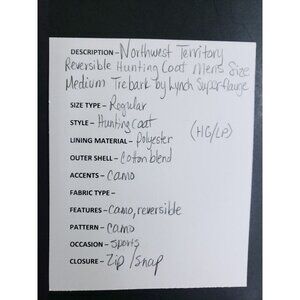 DESCRIPTION – Northwest Territory
Reversible Hunting Coat Mens Size
Medium Trebark by Lynch Superflauge
SIZE TYPE – Regular
STYLE – Hunting coat (HG/LP)
LINING MATERIAL – polyester
OUTER SHELL – Coton blend
ACCENTS – Camo
FABRIC TYPE –
FEATURES – camo, reversible
PATTERN – camo
OCCASION – sports
CLOSURE – Zip / Snap